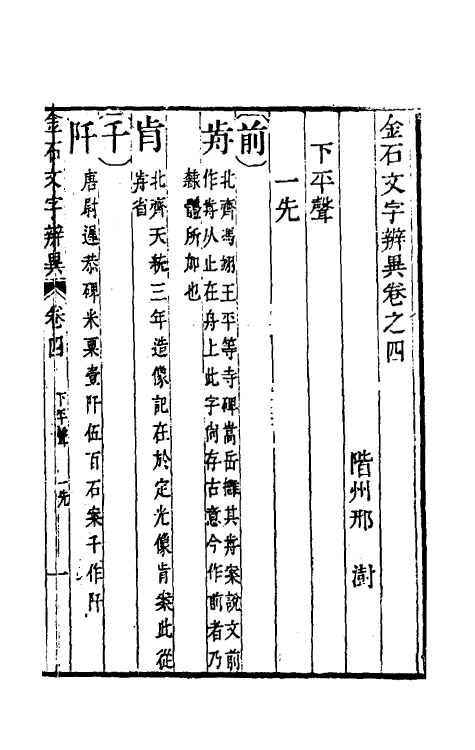 金石文字辨異卷之四
階州邢 澍
下平聲
一先
前
歬 北齊馮翊王平等寺碑嵩岳擁其歬案說文前
作歬从止在舟上此字尚存古意今作前者乃
隸體所加也
肯 北齊天統三年造像記在於定光像肯案此從
歬省
千
阡 唐尉遲恭碑米粟壹阡伍百石案千作阡
金石文字辨異 卷四 下平聲 一先 一